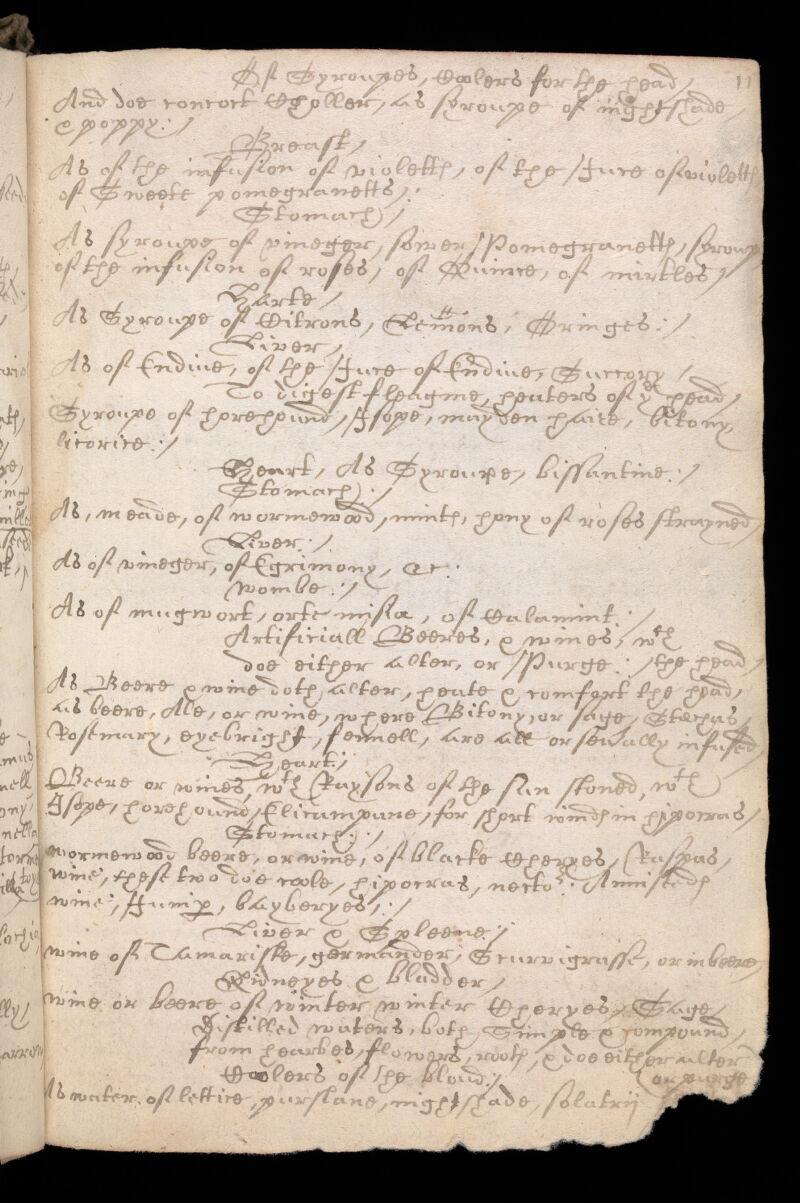 Of Syroupes, Coolers for the head / 11
And doe concoct Choller, as syroupe of nightshade,
& poppy :/
Breast,
As of the infusion of violetts, of the Juce of violetts
of Sweete pomegranetts /:
Stomach /
As syroupe of vineger, sower Pomegranetts, syroup
of the infusion of roses, of Quince, of mirtles /
Harte /
As Syroupe of Citrons, Lemons, Oringes :/
Liver /
As of Endive, of the Juce of Endive, Succory /
To digest fleagme, heaters of ye head /
Syroupe of horehound, Isope, mayden haire, bitony,
licorice :/
Heart, As Syroupe, bissantine :/
Stomach :/
As, meade, of wormewood, minth, hony of roses strayned /
Liver :/
As of vineger, of Egrimony, &c :
wombe :/
As of mugwort, artemisia, of Calamint :/
Artificiall Beeres, & wines, wth
doe either alter, or Purge : / the head /
As Beere & wine doth alter, heate & comfort the head,
as beere, Ale, or wine, where Bitony, or sage, Stæchas,
Rosemary, eyebright, fennell, are all or severally infused /
Heart :/
Beere or wines, wth Raysons of the sun stoned, wth
Isope, horehound, Elicampane, for short winds in hipocras /
Stomach :/
wormewood beere, or wine, of blacke Cheryes, Raspas,
wine, these two doe coole, hipocras, necto: Annisteds
wine, Junip, bayberyes, :/
Liver & Spleene :/
wine of Tamariske, germander, Scurvigrasse, or in beere
Kidneyes & bladder /
wine or beere of winter winter Cheryes, Sage /
Distilled waters, both Simple & compound /
from hearbes, flowers, rooth, & doe either alter
Coolers of the bloud :/ or purge
As water of lettice, purslane, nightshade, solatrij